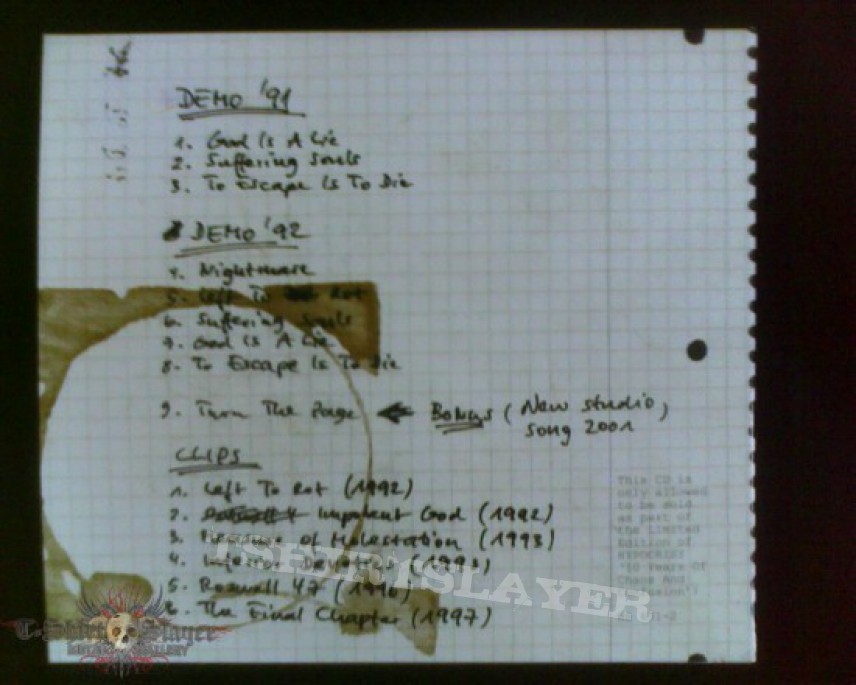 DEMO '91
1. God Is A Lie
2. Suffering Souls
3. To Escape Is To Die
DEMO '92
4. Nightmare
5. Left To Rot
6. Suffering Souls
7. God Is A Lie
8. To Escape Is To Die
9. Turn The Page ← Bonus (New studio song 2001)
CLIPS
1. Left To Rot (1992)
2. Impotent God (1992)
3. Pleasure of Molestation (1993)
4. Inferior Devoties (1993)
5. Roswell 47 (1996)
6. The Final Chapter (1997)
This CD is
only allowed
to be sold
as part of
the LIMITED
Edition of
HYPOCRISY
"10 Years Of
Chaos And
TSHIRTSLAYER
T-Shirt Slayer